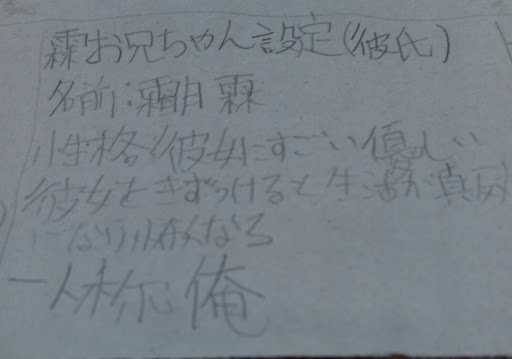 霖お兄ちゃん設定(彼氏)
名前:霜月 霖
性格:彼女にすごい優しい
彼女をきずつけると生活が真反
になり
一人称:俺